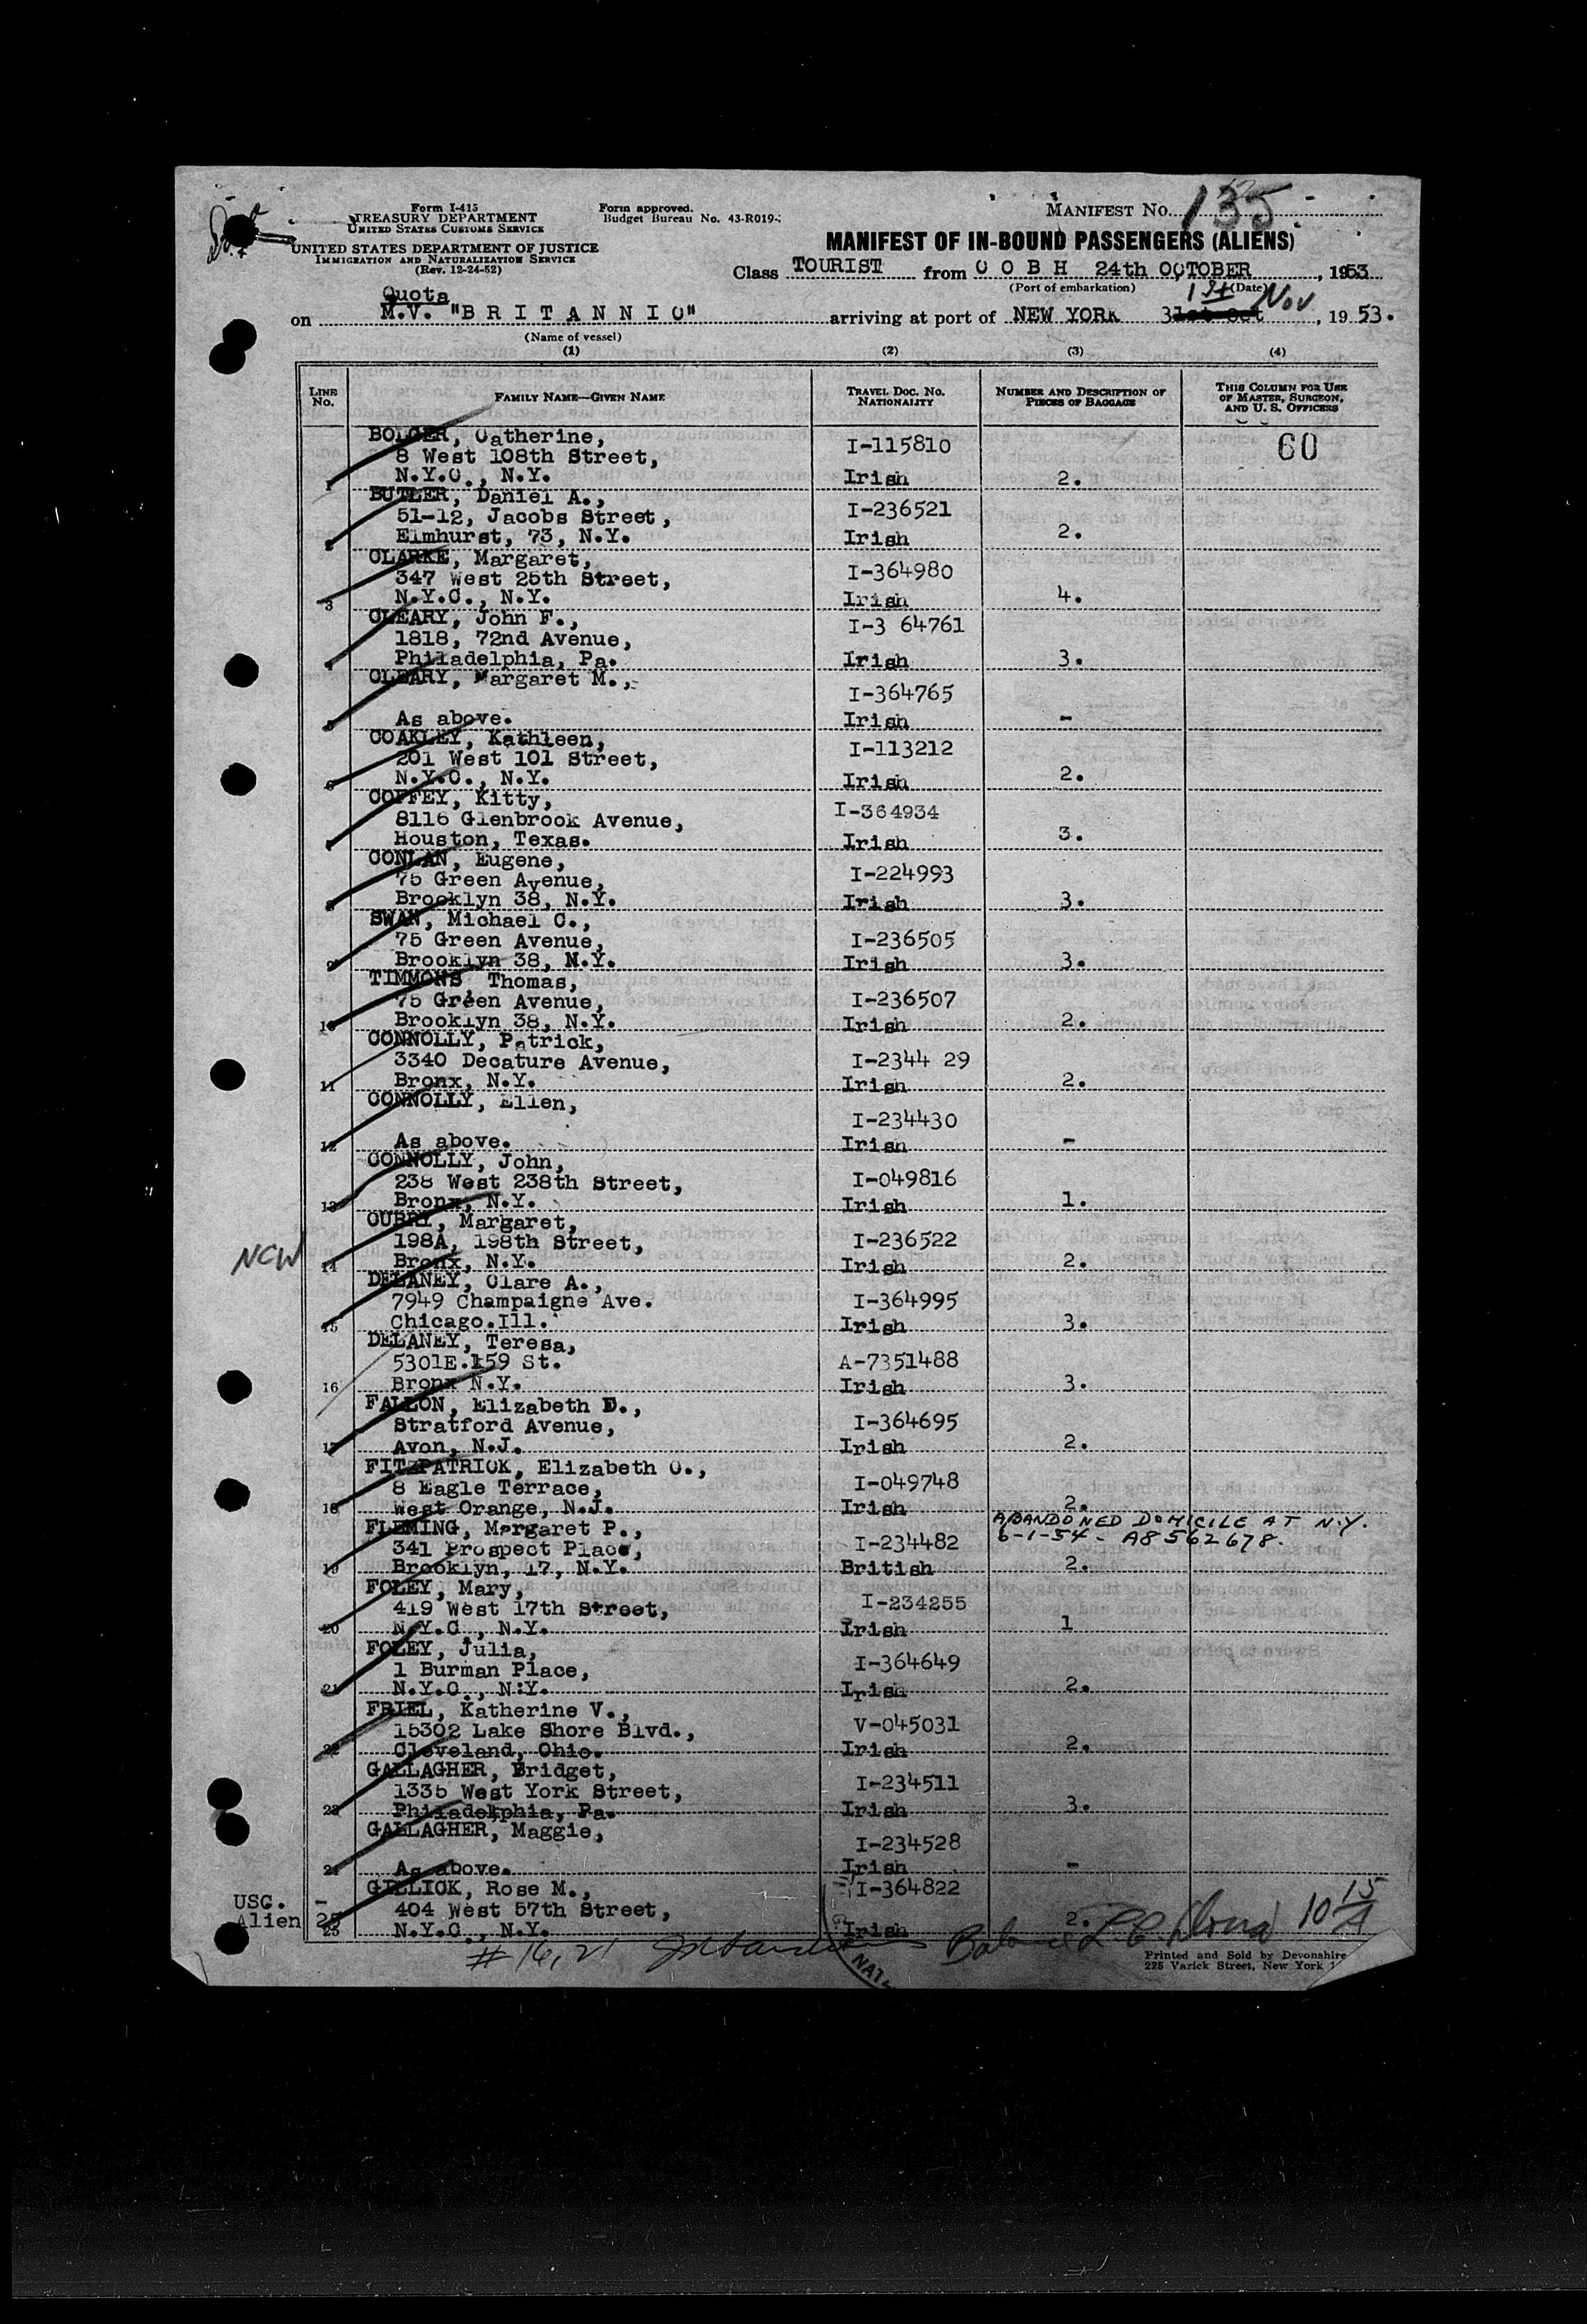 Form I-415
TREASURY DEPARTMENT
UNITED STATES CUSTOMS SERVICE
UNITED STATES DEPARTMENT OF JUSTICE
IMMIGRATION AND NATURALIZATION SERVICE
(Rev. 12-24-52)
Form approved.
Budget Bureau No. 43-R019-
MANIFEST NO. 135
MANIFEST OF IN-BOUND PASSENGERS (ALIENS)
Class TOURIST from C O B H 24th OCTOBER, 1953
(Port of embarkation) (Date)
Quota
on M.V. "B R I T A N N I C" arriving at port of NEW YORK 31st Oct 1st Nov, 1953.
(Name of vessel)
(1) (2) (3) (4)
LINE NO.
FAMILY NAME—GIVEN NAME
TRAVEL DOC. NO. NATIONALITY
NUMBER AND DESCRIPTION OF PIECES OF BAGGAGE
THIS COLUMN FOR USE OF MASTER, SURGEON, AND U. S. OFFICERS
60
BOLGER, Catherine,
8 West 108th Street, I-115810
1 N.Y.C., N.Y. Irish 2.
BUTLER, Daniel A.,
51-12, Jacobs Street, I-236521
2 Elmhurst, 73, N.Y. Irish 2.
CLARKE, Margaret,
347 West 25th Street, I-364980
3 N.Y.C., N.Y. Irish 4.
CLEARY, John F., I-3 64761
1818, 72nd Avenue,
4 Philadelphia, Pa. Irish 3.
CLEARY, Margaret M.,
I-364765
5 As above. Irish -
COAKLEY, Kathleen, I-113212
201 West 101 Street,
6 N.Y.C., N.Y. Irish 2.
COFFEY, Kitty, I-364934
8116 Glenbrook Avenue,
7 Houston, Texas. Irish 3.
CONLAN, Eugene,
75 Green Avenue, I-224993
8 Brooklyn 38, N.Y. Irish 3.
SWAN, Michael C.,
75 Green Avenue, I-236505
9 Brooklyn 38, N.Y. Irish 3.
TIMMONS, Thomas,
75 Green Avenue, I-236507
10 Brooklyn 38, N.Y. Irish 2.
CONNOLLY, Patrick,
3340 Decature Avenue, I-2344 29
11 Bronx, N.Y. Irish 2.
CONNOLLY, Ellen,
I-234430
12 As above. Irish -
CONNOLLY, John,
238 West 238th Street, I-049816
13 Bronx, N.Y. Irish 1.
CURRY, Margaret,
198A, 198th Street, I-236522
NCW 14 Bronx, N.Y. Irish 2.
DELANEY, Clare A.,
7949 Champaigne Ave. I-364995
15 Chicago.Ill. Irish 3.
DELANEY, Teresa,
5301E.159 St. A-7351488
16 Bronx N.Y. Irish 3.
FALLON, Elizabeth D.,
Stratford Avenue, I-364695
17 Avon, N.J. Irish 2.
FITZPATRICK, Elizabeth C.,
8 Eagle Terrace, I-049748
18 West Orange, N.J. Irish 2.
ABANDONED DOMICILE AT N.Y.
6-1-54 - A8 562678.
FLEMING, Margaret P.,
341 Prospect Place, I-234482
19 Brooklyn, 17, N.Y. British 2.
FOLEY, Mary,
419 West 17th Street, I-234255
20 N.Y.C., N.Y. Irish 1
FOLEY, Julia,
1 Burman Place, I-364649
21 N.Y.C., N:Y. Irish 2.
FRIEL, Katherine V.,
15302 Lake Shore Blvd., V-045031
22 Cleveland, Ohio. Irish 2.
GALLAGHER, Bridget,
1335 West York Street, I-234511
23 Philadelphia, Pa. Irish 3.
GALLAGHER, Maggie,
I-234528
24 As above. Irish -
GILLICK, Rose M., I-364822
USC. - 404 West 57th Street,
Alien 25 25 N.Y.C., N.Y. Irish 2.
# 16, 21
10 15/A
NAT
Printed and Sold by Devonshire
225 Varick Street, New York 1